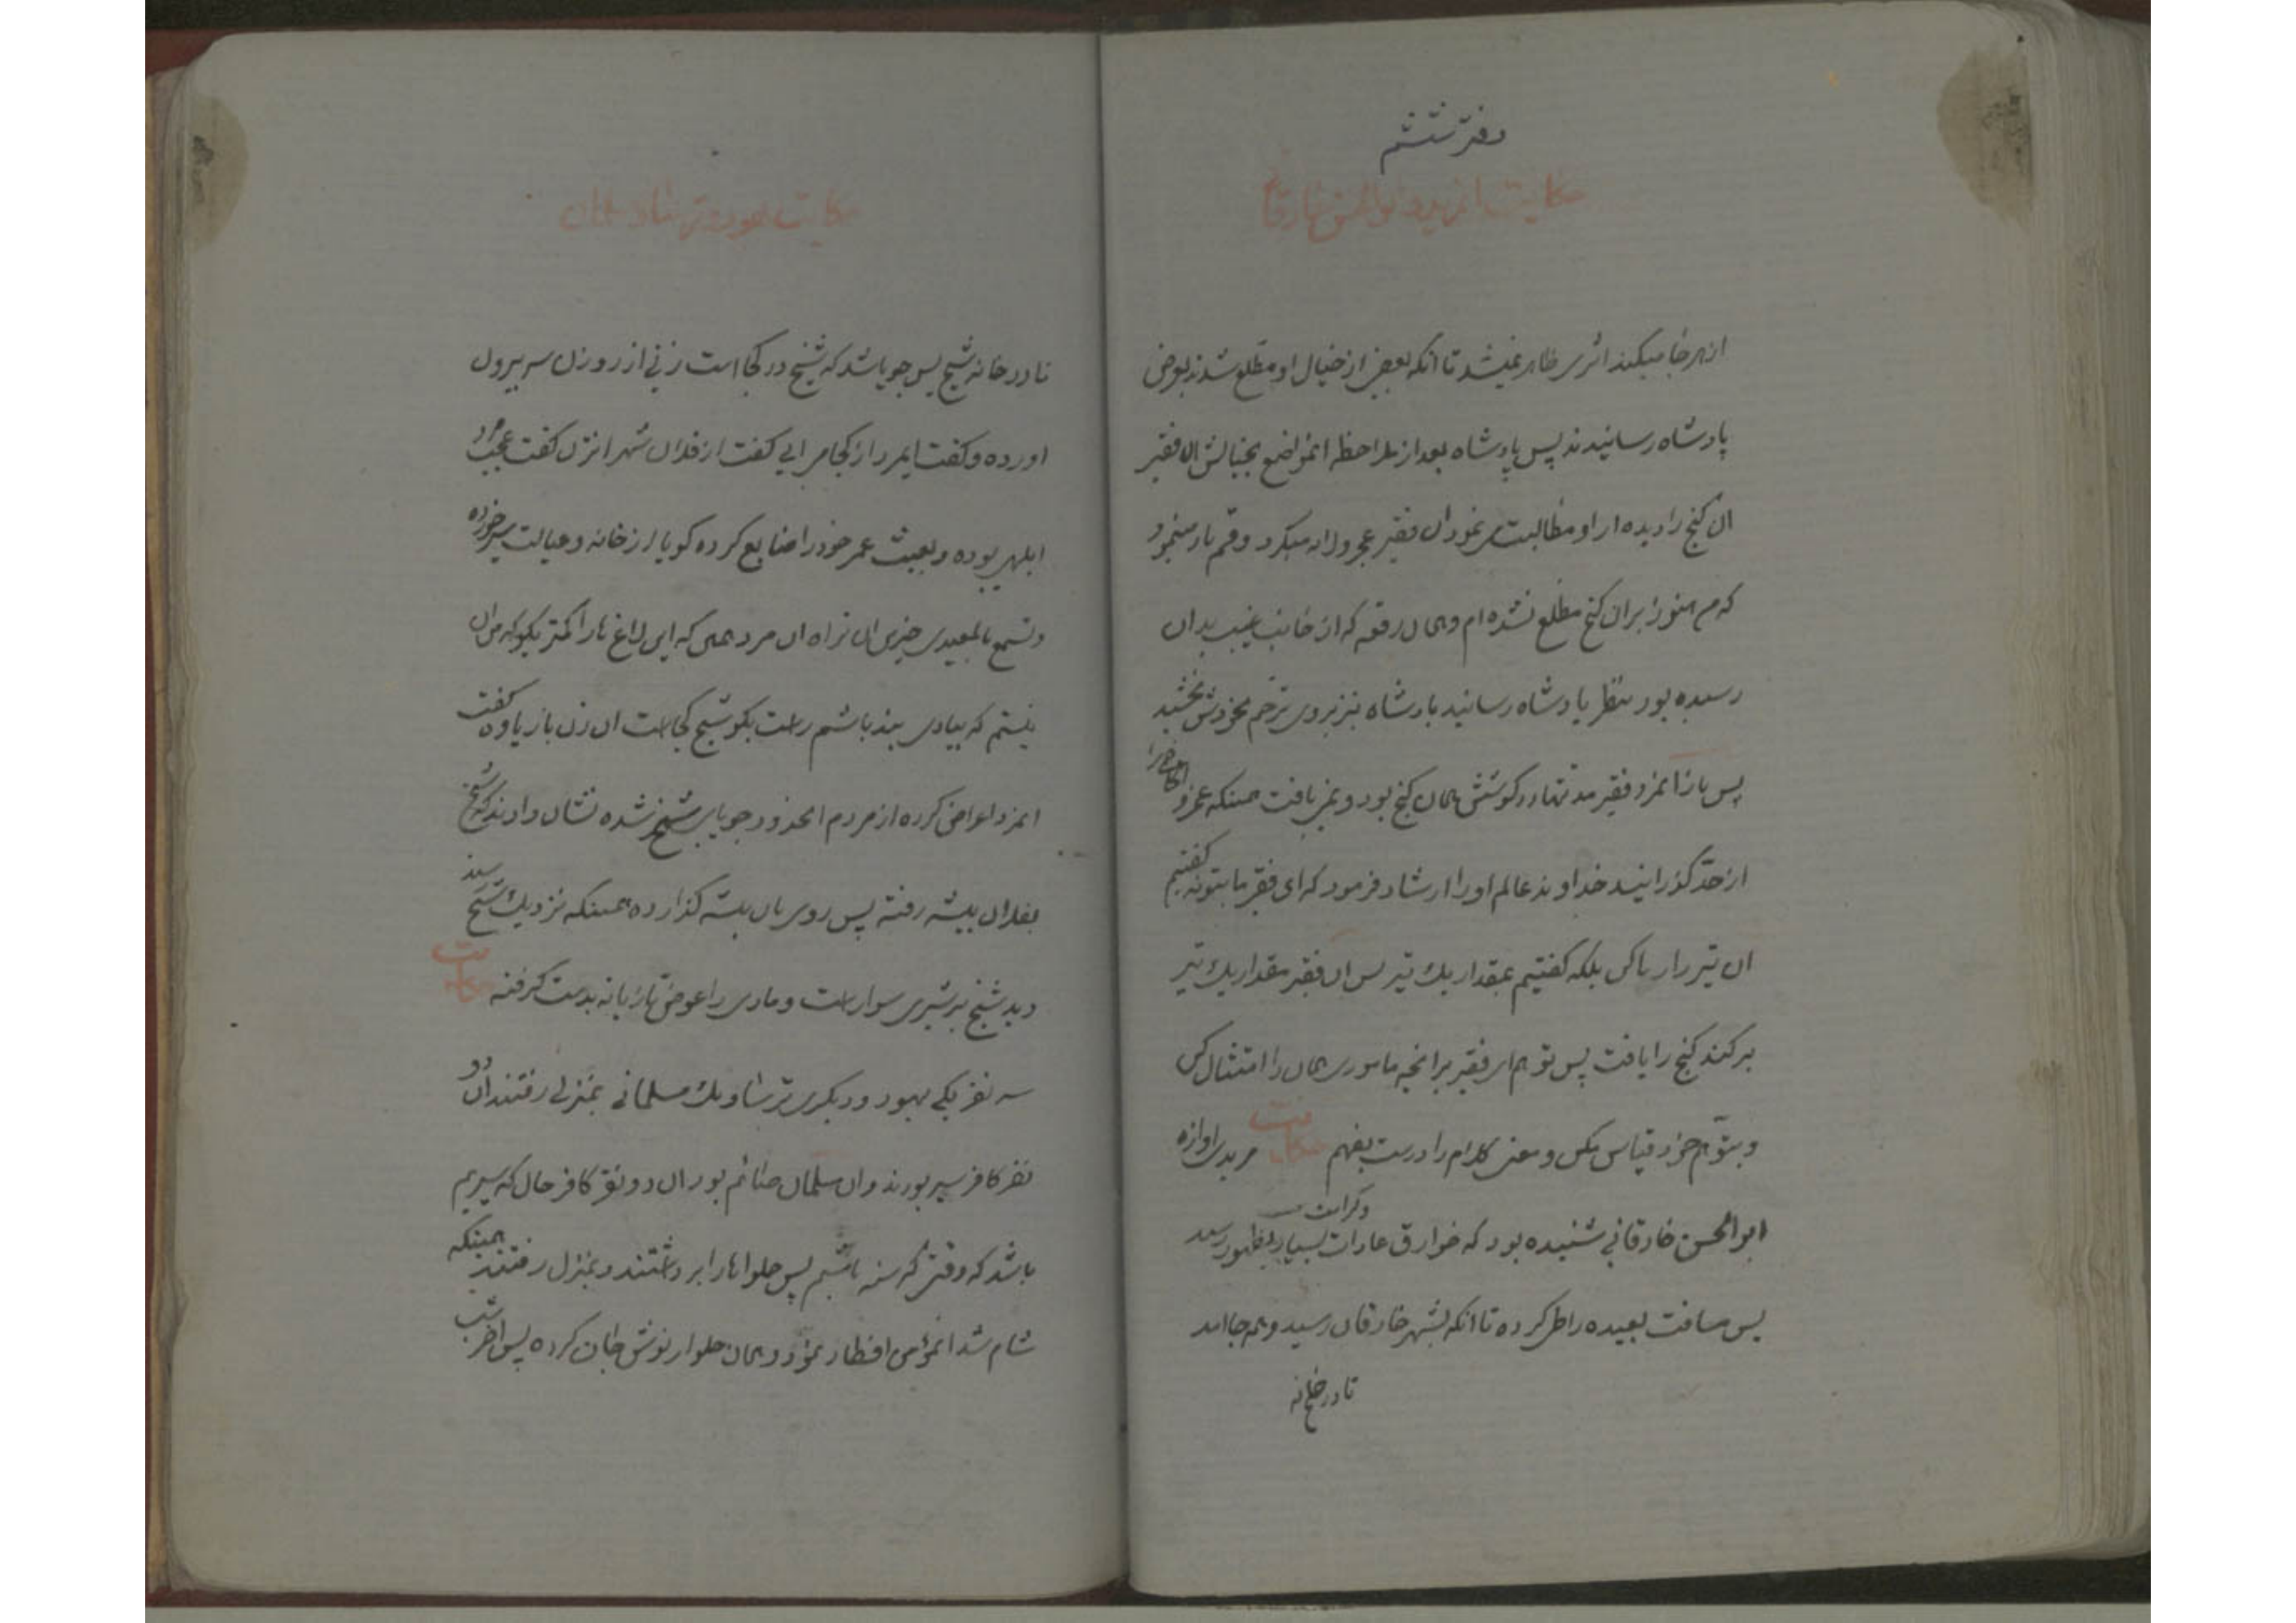 دفتر ششم
حکایت انمرید و ابوالحسن خارقانی
از هر جا میکند اثری ظاهر نمیشد تا انکه بعضی از خیال او مطلع شدند بعرض
پادشاه رسانیدند پس پادشاه بعد از ملاحظه انمواضع بخیالش ان فقیر
ان کنج را دیده از او مطالبت می نمود ان فقیر عجز و لابه میکرد و قسم یاد مینمود
که من هنوز بران کنج مطلع نشده ام و همان رقعه که از جانب غیب بدان
رسیده بود بنظر پادشاه رسانید پادشاه نیز بروی ترحم بخودش بخشید
پس باز انمرد فقیر مدتها در کوشش همان کنج بود و نمی یافت همینکه عجز و الحاح را
از حد کذرانید خداوند عالم او را ارشاد فرمود که ای فقیر ما بتو نه کفتیم
ان تیر را رها کن بلکه کفتیم بمقدار یک تیر پس ان فقیر مقدار یک تیر
بر کند کنج را یافت پس تو هم ای فقیر برانچه ماموری همان را امتثال کن
و بتوهم خود قیاس مکن و معنی کلام را درست بفهم حکایت مریدی اوازه
ابوالحسن خارقانی شنیده بود که خوارق عادات و کرامت بسیار بظهور رسد
پس مسافت بعیده را طی کرده تا انکه بشهر خارقان رسید و همه جا امد
تا در خانه
حکایت یهود و ترسا و مسلمان
تا در خانه شیخ پس جویا شد که شیخ در کجا است زنی از روزن سر بیرون
اورده و کفت ایمرد از کجا می ایی کفت از فلان شهر انزن کفت عجب مرد
ابلهی بوده و بعبث عمر خود را ضایع کرده کویا از خانه و عیالت سیر خورده
و تسمع بالمعیدی خیر من ان تراه ان مرد همی که این لاغ ها را کمتر بکو که من ان
نیستم که ببادی بند باشم راست بکو شیخ کجاست ان زن باز یاوه کفت
انمرد اعراض کرده از مردم اخذ و جویای شیخ شده نشان دادند که شیخ
بفلان بیشه رفته پس روی بان بیشه کذارده همینکه نزدیک شیخ رسید
دید شیخ بر شیری سوار است و ماری را عوض تازیانه بدست کرفته حکایت
سه نفر یکی یهود و دیکری ترسا و یک مسلمانی بمنزلی رفتند ان دو
نفر کافر سیر بودند و ان مسلمان صائم بود ان دو نفر کافر حال که سیریم
باشد که وقتی که کرسنه باشیم پس حلواها را برداشتند و بمنزل رفتند همینکه
شام شد انمؤمن افطار نمود و همان حلوا را نوش جان کرده پس اخر شب